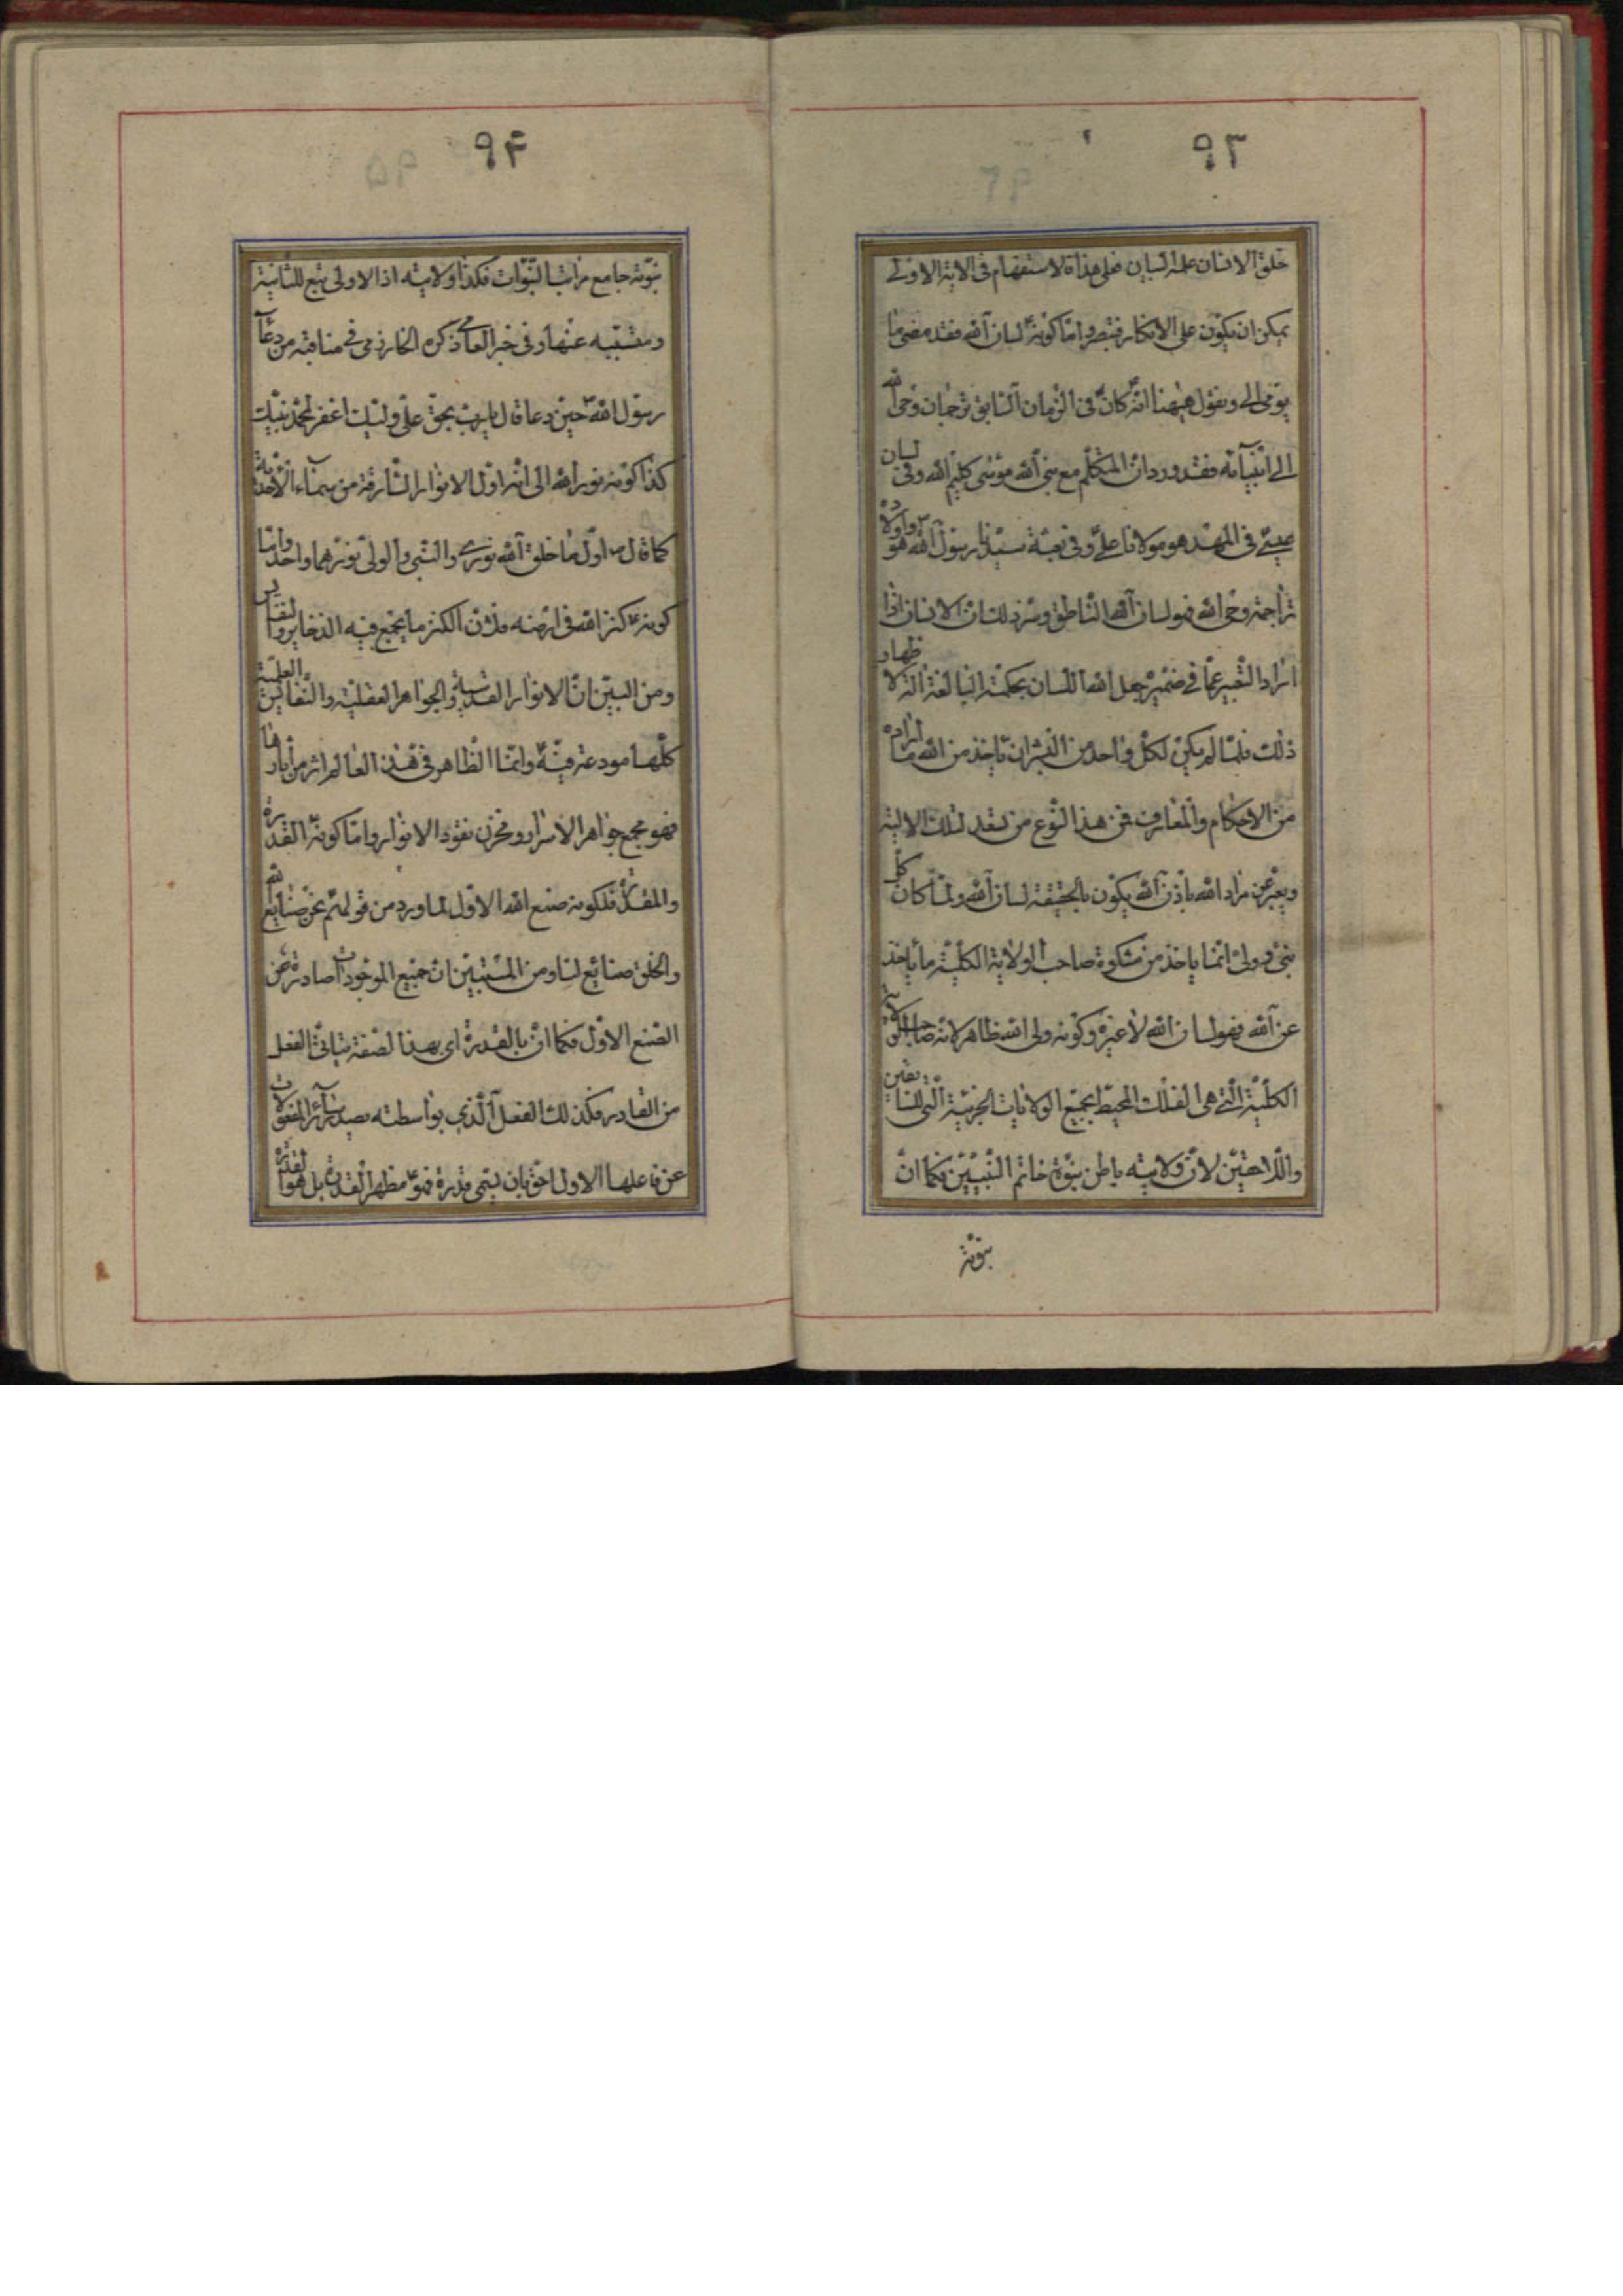 ٩٣
خلق الانسان علمه البيان فعلى هذا فالاستفهام فى الاية الاولى
يمكن ان يكون على الانكار فتبصر واما كونه لسان الله فقد مضى ما
يومى الى ونقول هيهنا انه كان فى الزمان السابق ترجمان وحى الله
الى انبيائه فقد ورد ان المتكلم مع نبى الله موسى كليم الله وفى لسان
عيسى فى المهد هو مولانا على وفى بعثة سيدنا رسول الله هو واولاده
تراجمة وحى الله فهو لسان الله الناطق وسر ذلك ان الانسان اذا
اراد التعبير عما فى ضميره جعل الله اللسان بحكمته البالغة الة لاظهار
ذلك فلما لم يكن لكل واحد من البشر ان ياخذ من الله ما اراده
من الاحكام والمعارف فمن هذا النوع من لتلك الالية
ويعبر عن مراد الله باذن الله يكون بالحقيقة لسان الله ولما كان كل
نبى وولى انما ياخذ من مشكوة صاحب الولاية الكلية ما ياخذ
عن الله فهو لسان الله لا غيره وكونه ولى الله ظاهر لانه صاحب الولاية
الكلية التى هى الفلك المحيط بجميع الولايات الجزئية التى للسابقين
واللاحقين لان ولايته باطن نبوة خاتم النبيين فكما ان
نبوته
٩۴
نبوته جامع مراتب النبوات فكذا ولايته اذ الاولى تبع للثانية
ومنشعبه عنها وفى خبر العامى ذكره الخوارزمى فى مناقبه من دعاء
رسول الله حين دعا قال يا رب بحق على وليك اغفر لمحمد نبيك
كذا كونه نور الله الى انه اول الانوار الشارقة من سماء الاحدية
كما قال اول ما خلق الله نورى والنبى والولى نورهما واحد واما
كونه كنز الله فى ارضه فلان الكنز ما يجمع فيه الذخاير والنفايس
ومن البين ان الانوار القدسية والجواهر العقلية والنفايس العلمية
كلها مودعة فيه وانما الظاهر فى هذا العالم اثر من اثارها
فهو مجمع جواهر الاسرار ومخزن نقود الانوار واما كونه القدرة
والمقدرة فلكونه صنع الله الاول لما ورد من قولهم نحن صنايع الله
والخلق صنائع لنا ومن المستبين ان جميع الموجودات صادرة عن
الصنع الاول فكما ان بالقدرة اى بهذا الصفة يتاتى الفعل
من القادر فكذلك الفعل الذى بواسطته يصدر سائر المفعولات
عن فاعلها الاول احق بان يسمى قدرة فهو مظهر القدرة بل هو القدرة